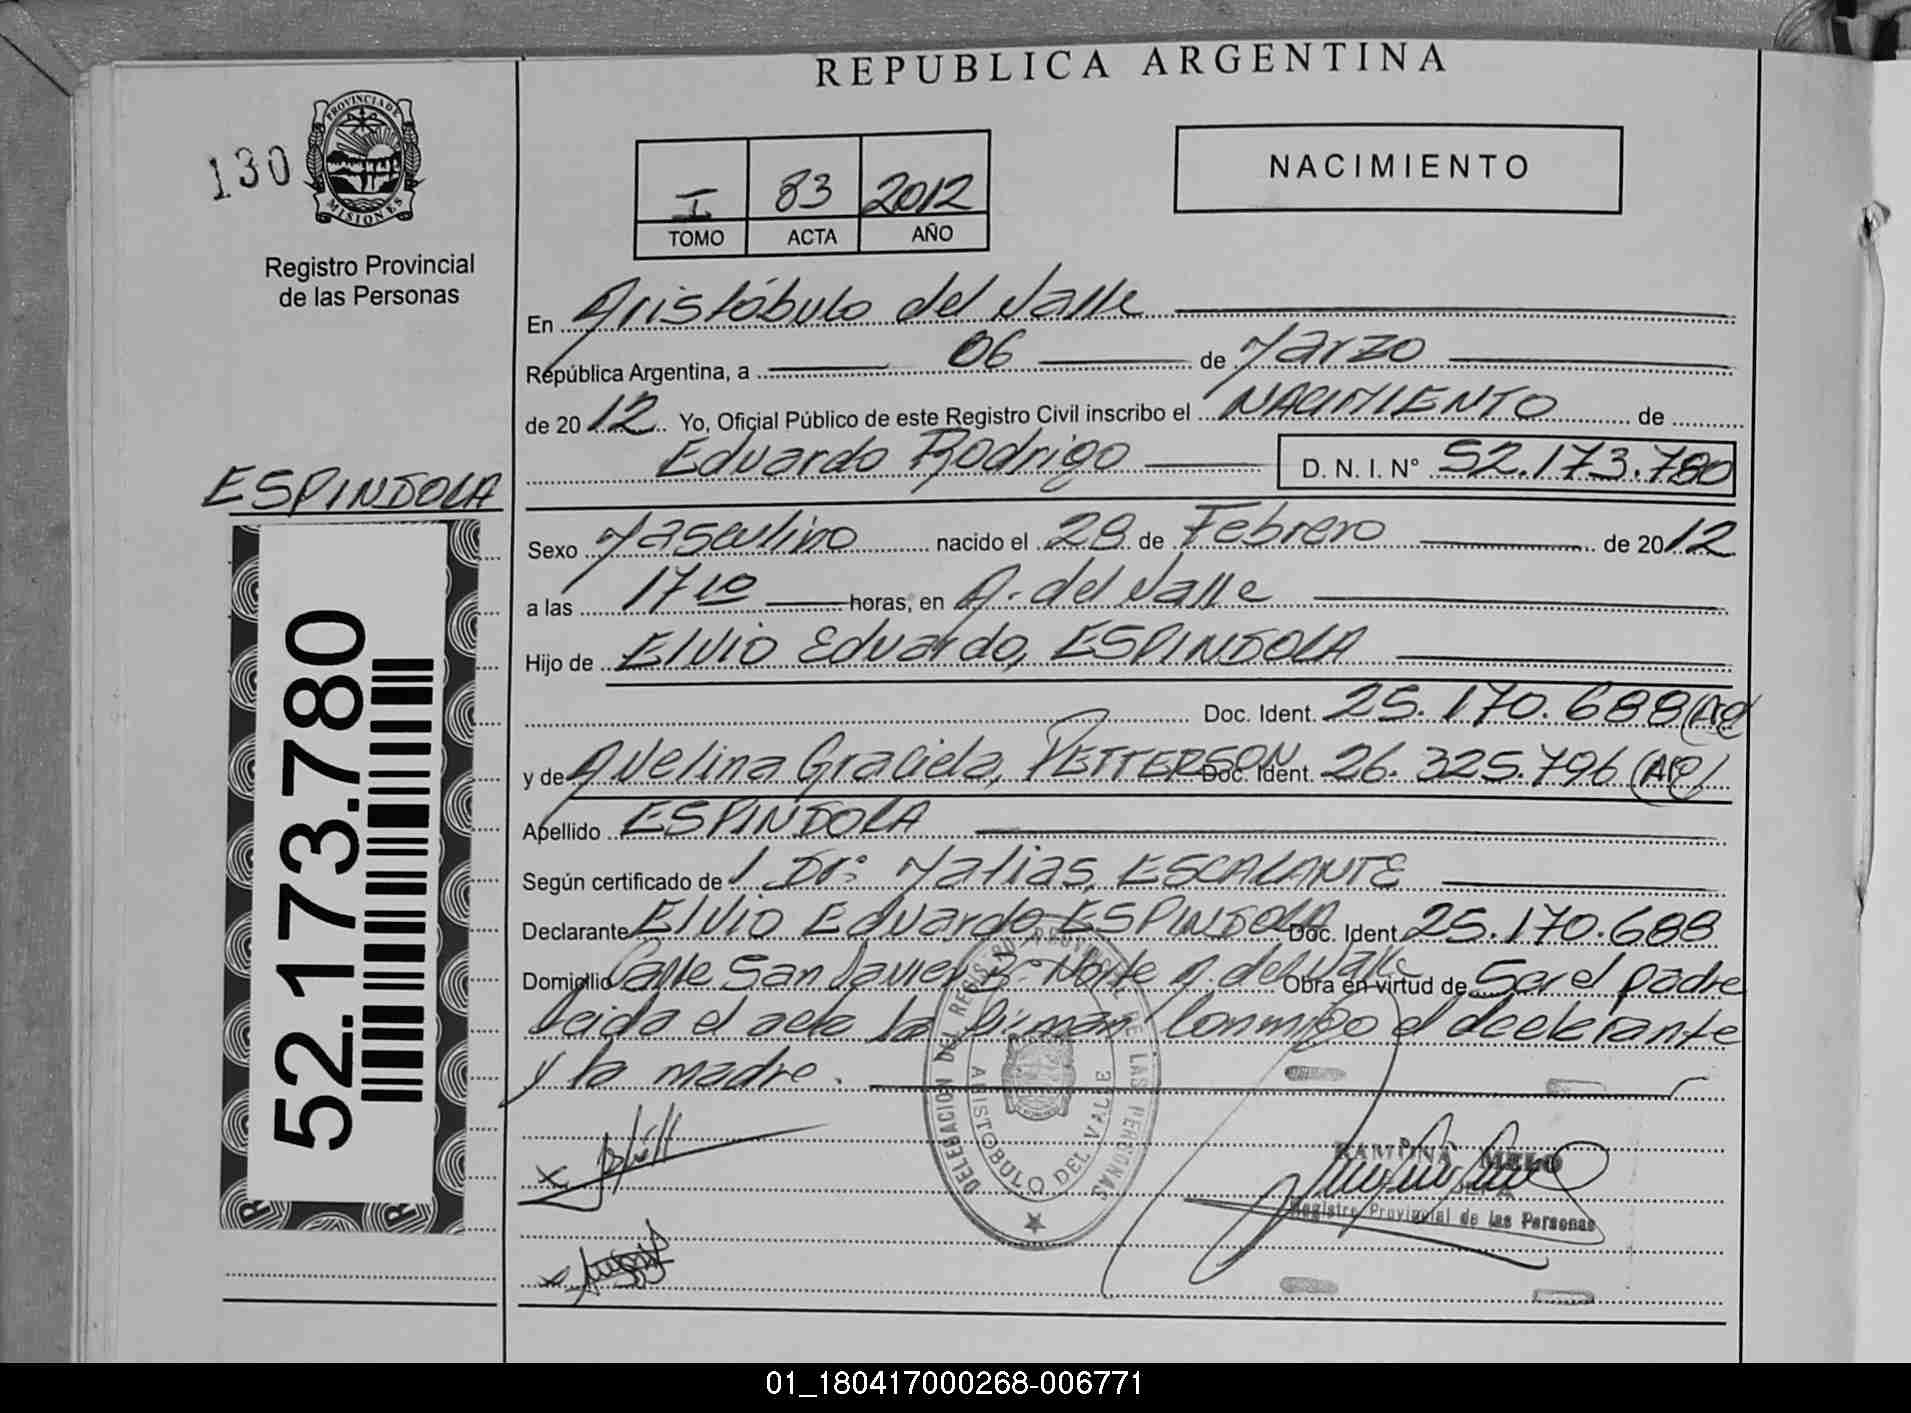 REPUBLICA ARGENTINA
130
PROVINCIA DE
MISIONES
Registro Provincial
de las Personas
NACIMIENTO
I 83 2012
TOMO ACTA AÑO
En Aristóbulo del Valle
República Argentina, a 06 de Marzo
de 2012 Yo, Oficial Público de este Registro Civil inscribo el NACIMIENTO de
Eduardo Rodrigo D. N. I. N° 52.173.780
ESPINDOLA
Sexo Masculino nacido el 28 de Febrero de 2012
a las 17 10 horas, en A. del Valle
Hijo de Elvio Eduardo, ESPINDOLA
Doc. Ident. 25.170.688 (AR)
y de Avelina Graciela, PETTERSON Doc. Ident. 26.325.796 (AR)
Apellido ESPINDOLA
Según certificado de Dr: Matias, ESCALANTE
Declarante Elvio Eduardo ESPINDOLA Doc. Ident. 25.170.688
Domicilio Calle San Javier B° Norte A. del Valle Obra en virtud de Ser el padre
Leida el acta la firman conmigo el declarante
y la madre.
52.173.780
DELEGACION DEL REGISTRO PROVINCIAL DE LAS PERSONAS
ARISTOBULO DEL VALLE
RAMONA MELO
JEFA
Registro Provincial de las Personas
01_180417000268-006771